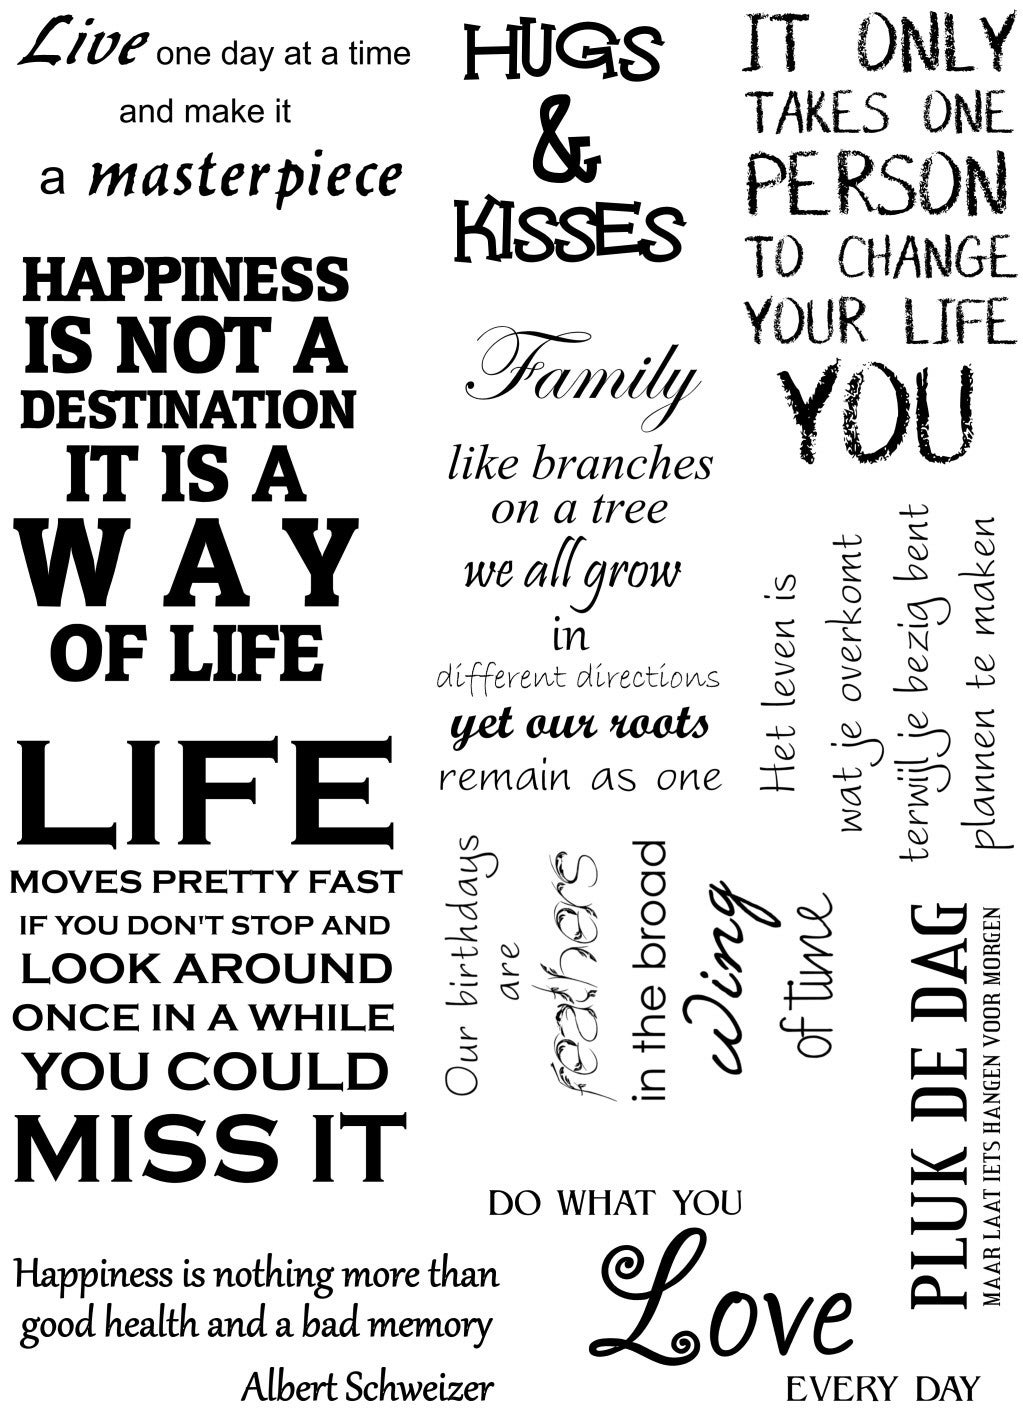 Live one day at a time
and make it
a masterpiece
HUGS
&
KISSES
IT ONLY
TAKES ONE
PERSON
TO CHANGE
YOUR LIFE
YOU
HAPPINESS
IS NOT A
DESTINATION
IT IS A
WAY
OF LIFE
Family
like branches
on a tree
we all grow
in
different directions
yet our roots
remain as one
Het leven is
wat je overkomt
terwijl je bezig bent
plannen te maken
LIFE
MOVES PRETTY FAST
IF YOU DON'T STOP AND
LOOK AROUND
ONCE IN A WHILE
YOU COULD
MISS IT
Our birthdays
are
feathers
in the broad
wing
of time
PLUK DE DAG
MAAR LAAT IETS HANGEN VOOR MORGEN
DO WHAT YOU
Love
EVERY DAY
Happiness is nothing more than
good health and a bad memory
Albert Schweizer